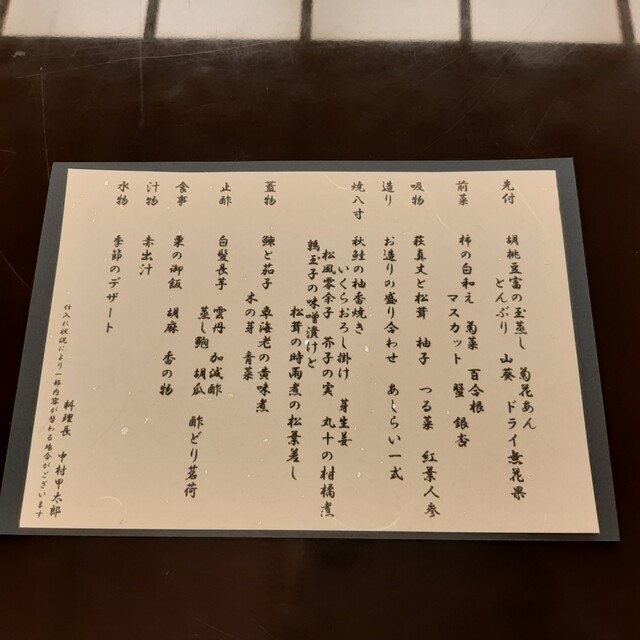 先付
胡桃豆富の玉蒸し 菊花あん
とんぶり 山葵 ドライ無花果
前菜
柿の白和え 菊菜 百合根
マスカット 蟹 銀杏
吸物
萩真丈と松茸 柚子 つる菜 紅葉人参
造り
お造りの盛り合わせ あしらい一式
焼八寸
秋鮭の柚香焼き
いくらおろし掛け 芽生姜
松風零余子 芥子の実 丸十の柑橘煮
鶉玉子の味噌漬けと
松茸の時雨煮の松葉差し
蓋物
鰊と茄子 車海老の黄味煮
木の芽 青菜
止酢
白髪長芋 雲丹 加減酢
蒸し鮑 胡瓜 酢どり茗荷
食事
栗の御飯 胡麻 香の物
汁物
赤出汁
水物
季節のデザート
料理長 中村甲太郎
仕入れ状況により一部内容が替わる場合がございます